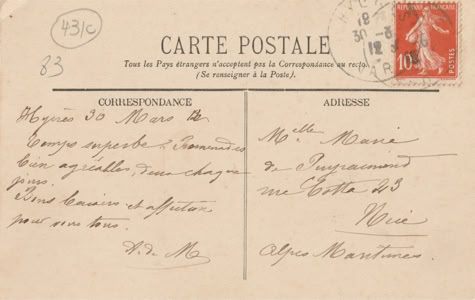 431c
83
CARTE POSTALE
Tous les Pays étrangers n'acceptent pas la Correspondance au recto.
(Se renseigner à la Poste).
CORRESPONDANCE
Hyères 30 Mars 12
Temps superbe. Promenades
bien agréables, deux chaque
jour.
Bons baisers et affection
pour vous tous.
A. de M
ADRESSE
Melle Marie
de Puyraimond
rue Cotta 43
Nice
Alpes Maritimes
RÉPUBLIQUE FRANÇAISE
10
POSTES
30 -3
12
VAR